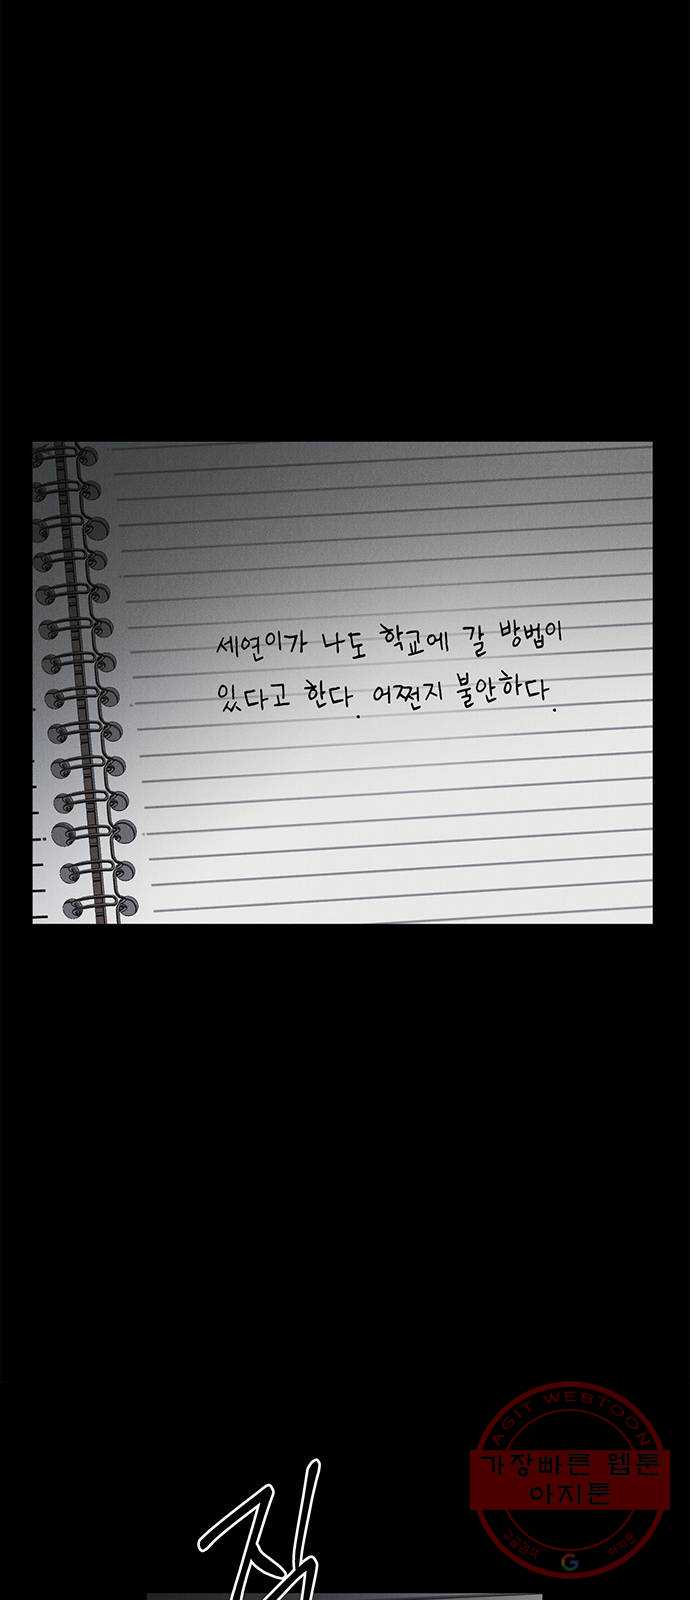 세연이가 나도 학교에 갈 방법이
있다고 한다. 어쩐지 불안하다.
AGIT WEBTOON
가장빠른 웹툰
아지툰